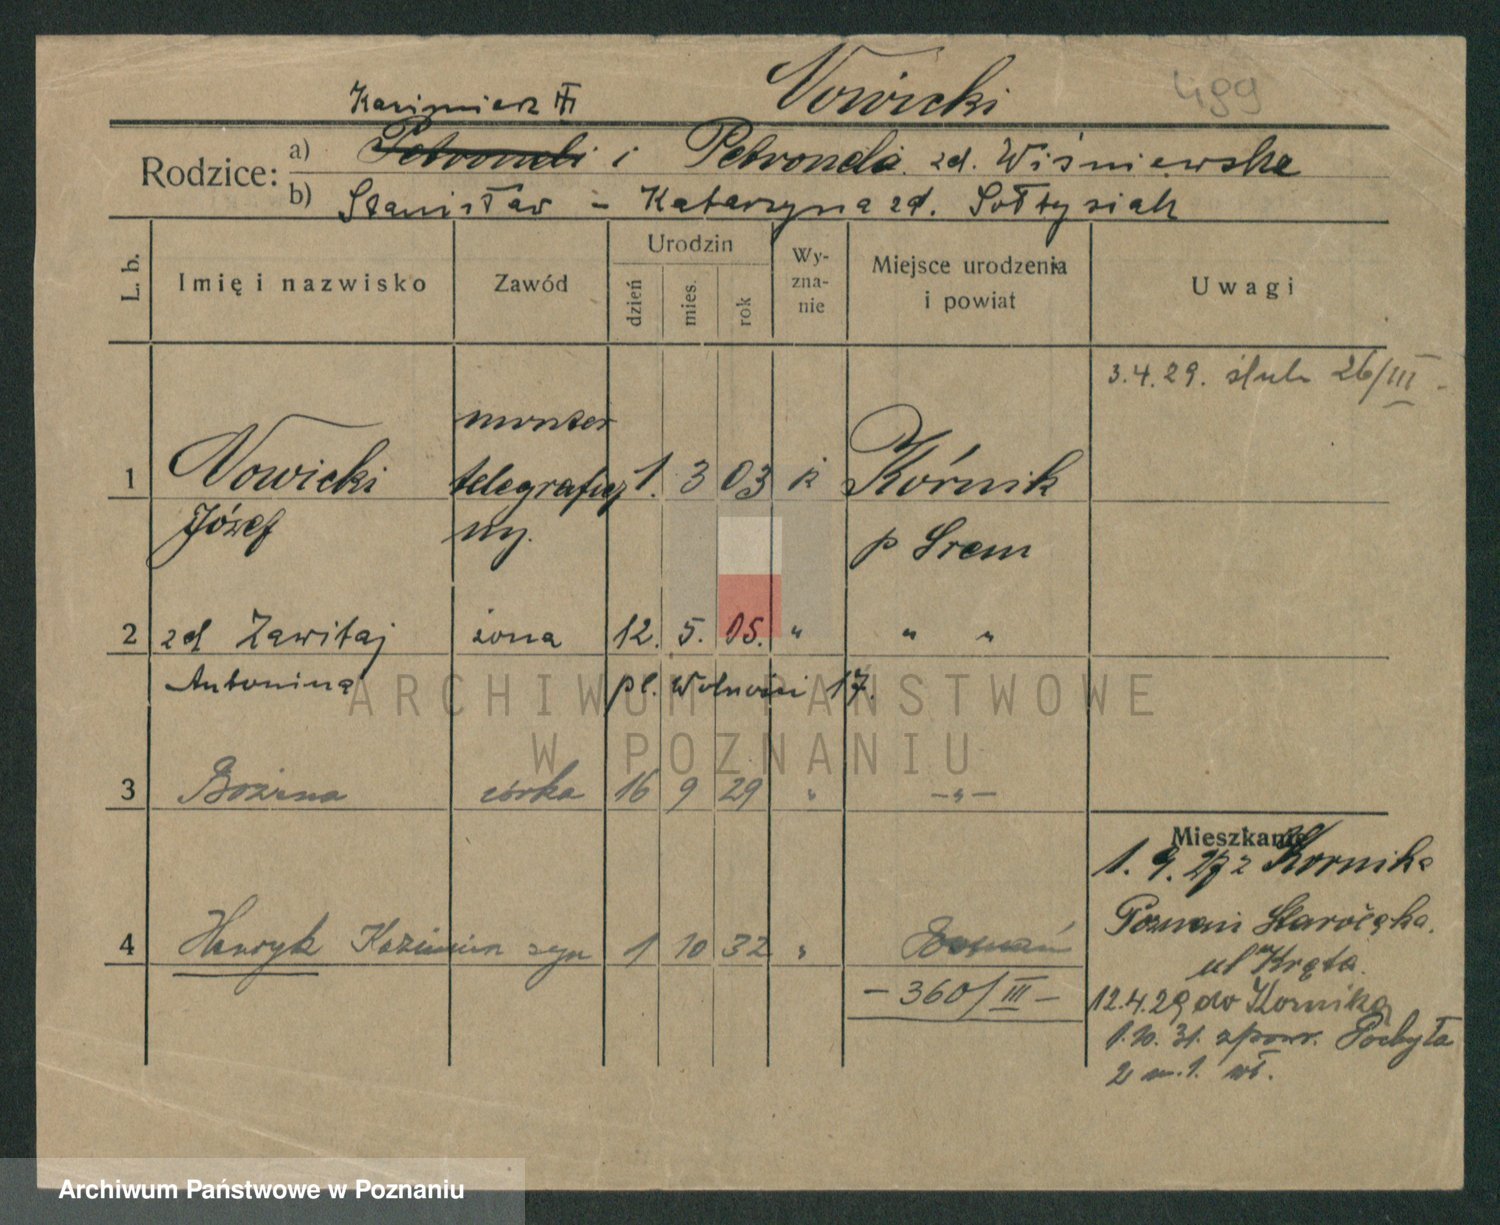 499
Nowicki
Kazimierz
Rodzice:
a) Petroneli i Petronela zd. Wiśniewska
b) Stanisław – Katarzyna zd. Sołtysiak
L. b.
Imię i nazwisko
Zawód
Urodzin
dzień
mies.
rok
Wy-
zna-
nie
Miejsce urodzenia
i powiat
Uwagi
3.4.29. ślub 26/III –
monter
1 Nowicki telegraficz 1. 3 03 k Kórnik
Józef ny. p Śrem
2 zd Zawitaj żona 12. 5. 05. " " "
Antonina pl. Wolności 17.
3 Bożena córka 16 9 29 " – " –
4 Henryk Kazimierz syn 1 10 32 " Poznań
– 360/III –
Mieszkanie
1. 9. 27 z Kornika
Poznań Starołęka.
ul Kręta.
12.4.29 do Kornika
1.10.31. z pow. Pochyła
2 m. 1. wł.
ARCHIWUM PAŃSTWOWE
W POZNANIU
Archiwum Państwowe w Poznaniu